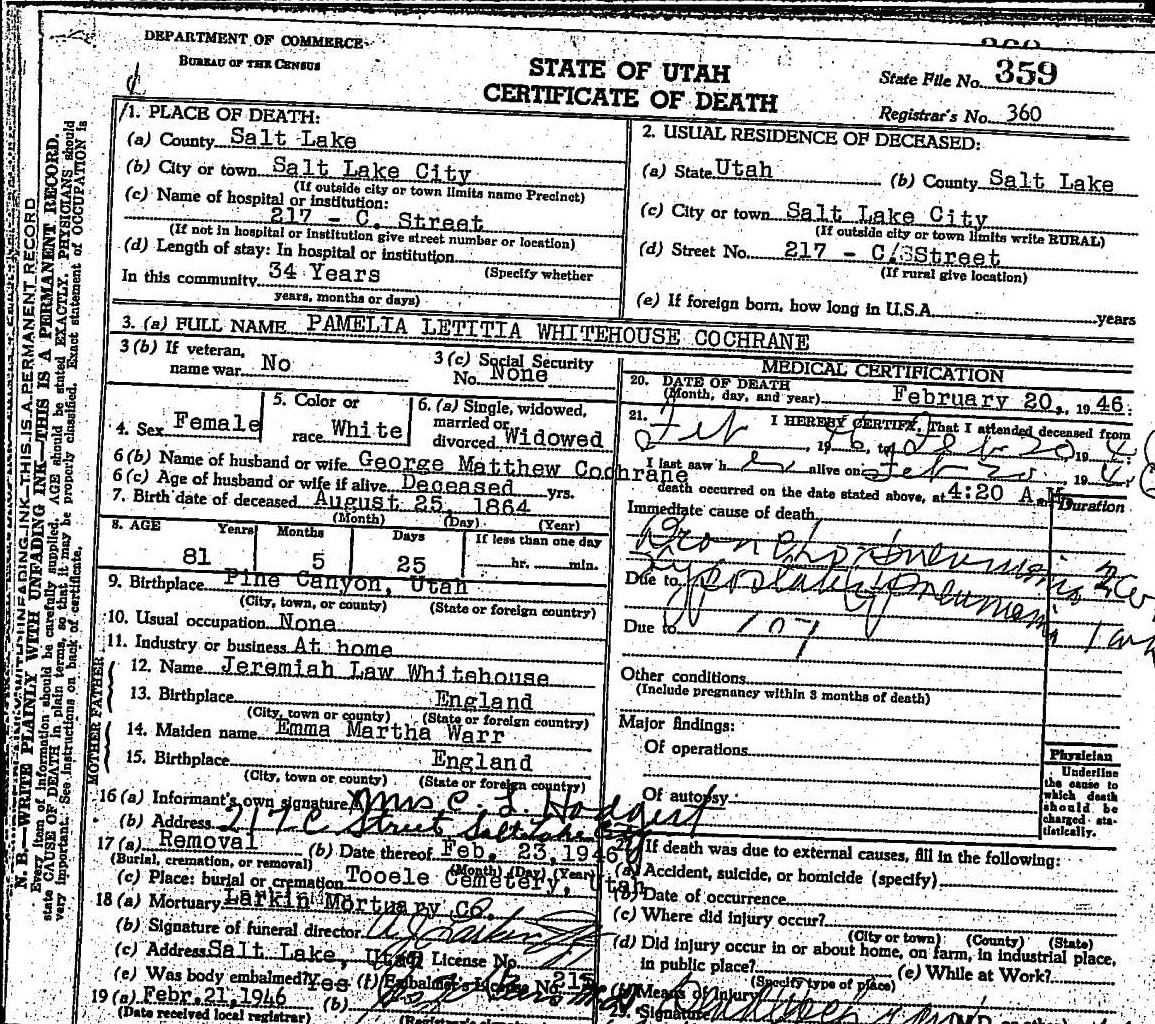 DEPARTMENT OF COMMERCE
BUREAU OF THE CENSUS
STATE OF UTAH
CERTIFICATE OF DEATH
State File No. 359
Registrar's No. 360
N. B.—WRITE PLAINLY WITH UNFADING INK—THIS IS A PERMANENT RECORD.
Every item of information should be carefully supplied. AGE should be stated EXACTLY. PHYSICIANS should
state CAUSE OF DEATH in plain terms, so that it may be properly classified. Exact statement of OCCUPATION is
very important. See instructions on back of certificate.
1. PLACE OF DEATH:
(a) County Salt Lake
(b) City or town Salt Lake City
(If outside city or town limits name Precinct)
(c) Name of hospital or institution:
217 - C. Street
(If not in hospital or institution give street number or location)
(d) Length of stay: In hospital or institution
(Specify whether
In this community 34 Years
years, months or days)
2. USUAL RESIDENCE OF DECEASED:
(a) State Utah (b) County Salt Lake
(c) City or town Salt Lake City
(If outside city or town limits write RURAL)
(d) Street No. 217 - C/SStreet
(If rural give location)
(e) If foreign born, how long in U.S.A. years
3. (a) FULL NAME PAMELIA LETITIA WHITEHOUSE COCHRANE
3 (b) If veteran, name war No
3 (c) Social Security No. None
4. Sex Female
5. Color or race White
6. (a) Single, widowed, married or divorced Widowed
6 (b) Name of husband or wife George Matthew Cochrane
6 (c) Age of husband or wife if alive Deceased yrs.
7. Birth date of deceased August 25, 1864
(Month) (Day) (Year)
8. AGE Years Months Days If less than one day
81 5 25 hr. min.
9. Birthplace Pine Canyon, Utah
(City, town, or county) (State or foreign country)
10. Usual occupation None
11. Industry or business At home
FATHER
12. Name Jeremiah Law Whitehouse
13. Birthplace England
(City, town or county) (State or foreign country)
MOTHER
14. Maiden name Emma Martha Warr
15. Birthplace England
(City, town or county) (State or foreign country)
16 (a) Informant's own signature Mrs C. L. Hodgert
(b) Address 217 C Street Salt Lake City
17 (a) Removal (b) Date thereof Feb. 23, 1946
(Burial, cremation, or removal) (Month) (Day) (Year)
(c) Place: burial or cremation Tooele Cemetery, Utah
18 (a) Mortuary Larkin Mortuary Co.
(b) Signature of funeral director
(c) Address Salt Lake, Utah License No.
(e) Was body embalmed? Yes (f) Embalmer's License No. 215
19 (a) Febr. 21, 1946 (b)
(Date received local registrar)
MEDICAL CERTIFICATION
20. DATE OF DEATH
(Month, day, and year) February 20, 1946.
21. I HEREBY CERTIFY, That I attended deceased from
Feb 1946, to Feb 20 19 4
I last saw her alive on Feb 20 19 4
death occurred on the date stated above, at 4:20 A.M.
Immediate cause of death Duration
Broncho pneumonia
Due to Hypostatic pneumonia
Due to 107
Other conditions
(Include pregnancy within 3 months of death)
Major findings:
Of operations
Of autopsy
Physician
Underline the cause to which death should be charged statistically.
If death was due to external causes, fill in the following:
(a) Accident, suicide, or homicide (specify)
(b) Date of occurrence
(c) Where did injury occur?
(City or town) (County) (State)
(d) Did injury occur in or about home, on farm, in industrial place,
in public place? (e) While at Work?
(Specify type of place)
(f) Means of injury
Signature